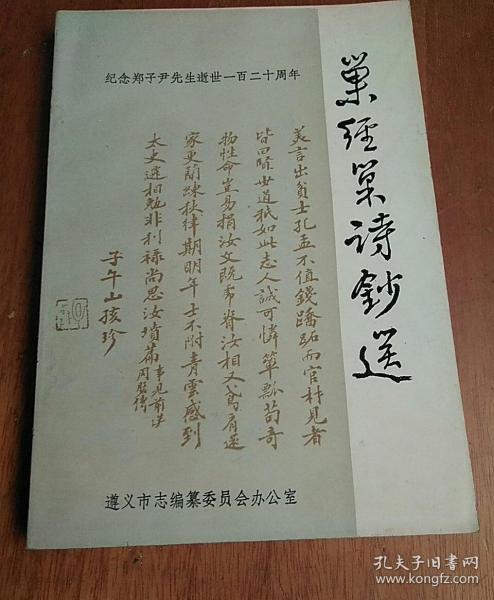 纪念郑子尹先生逝世一百二十周年
巢经巢诗钞选
美言出貧士孔孟不值錢蹻跖而官材見者
皆曰賢世道秖如此志人誠可憐箪瓢苟奇
物性命豈易捐汝文既秀脊汝相又鳶肩遂
家更闌練秋律期明年士不附青雲感到
太史遷相勉非利禄尚思汝墳篇
子午山孩珍
遵义市志编纂委员会办公室
孔夫子旧书网
www.kongfz.com